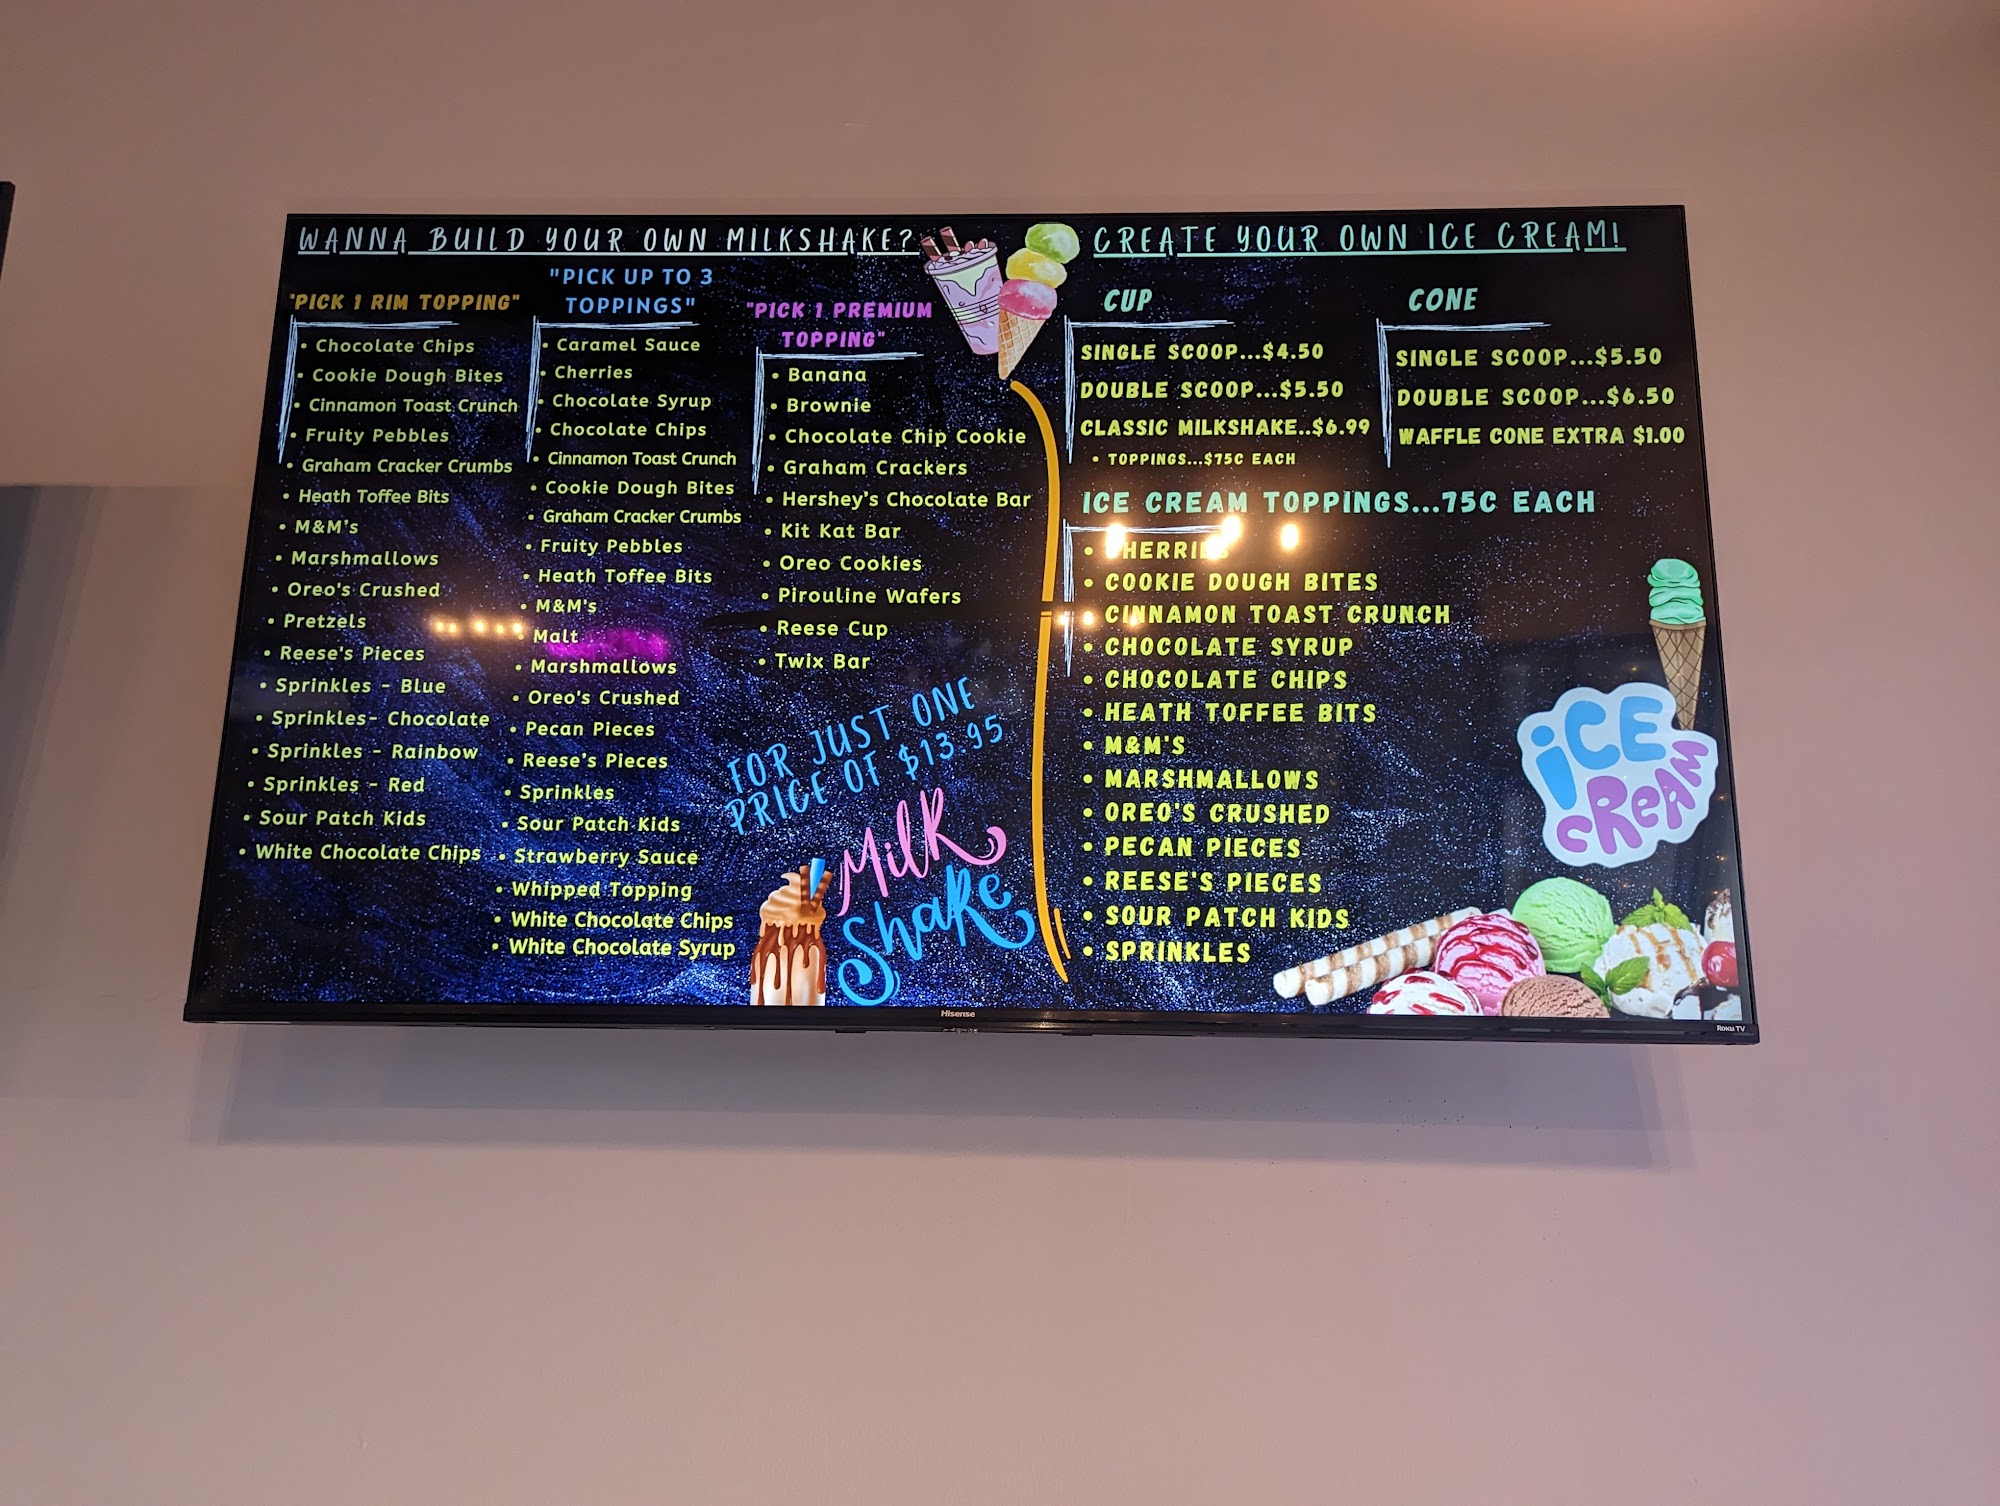 WANNA BUILD YOUR OWN MILKSHAKE?
"PICK 1 RIM TOPPING"
• Chocolate Chips
• Cookie Dough Bites
• Cinnamon Toast Crunch
• Fruity Pebbles
• Graham Cracker Crumbs
• Heath Toffee Bits
• M&M's
• Marshmallows
• Oreo's Crushed
• Pretzels
• Reese's Pieces
• Sprinkles - Blue
• Sprinkles- Chocolate
• Sprinkles - Rainbow
• Sprinkles - Red
• Sour Patch Kids
• White Chocolate Chips
"PICK UP TO 3
TOPPINGS"
• Caramel Sauce
• Cherries
• Chocolate Syrup
• Chocolate Chips
• Cinnamon Toast Crunch
• Cookie Dough Bites
• Graham Cracker Crumbs
• Fruity Pebbles
• Heath Toffee Bits
• M&M's
• Malt
• Marshmallows
• Oreo's Crushed
• Pecan Pieces
• Reese's Pieces
• Sprinkles
• Sour Patch Kids
• Strawberry Sauce
• Whipped Topping
• White Chocolate Chips
• White Chocolate Syrup
"PICK 1 PREMIUM
TOPPING"
• Banana
• Brownie
• Chocolate Chip Cookie
• Graham Crackers
• Hershey's Chocolate Bar
• Kit Kat Bar
• Oreo Cookies
• Pirouline Wafers
• Reese Cup
• Twix Bar
FOR JUST ONE
PRICE OF $13.95
Milk
Shake
CREATE YOUR OWN ICE CREAM!
CUP
SINGLE SCOOP...$4.50
DOUBLE SCOOP...$5.50
CLASSIC MILKSHAKE..$6.99
• TOPPINGS...$75C EACH
CONE
SINGLE SCOOP...$5.50
DOUBLE SCOOP...$6.50
WAFFLE CONE EXTRA $1.00
ICE CREAM TOPPINGS...75C EACH
• CHERRIES
• COOKIE DOUGH BITES
• CINNAMON TOAST CRUNCH
• CHOCOLATE SYRUP
• CHOCOLATE CHIPS
• HEATH TOFFEE BITS
• M&M'S
• MARSHMALLOWS
• OREO'S CRUSHED
• PECAN PIECES
• REESE'S PIECES
• SOUR PATCH KIDS
• SPRINKLES
iCE
CReAM
Hisense
Roku TV